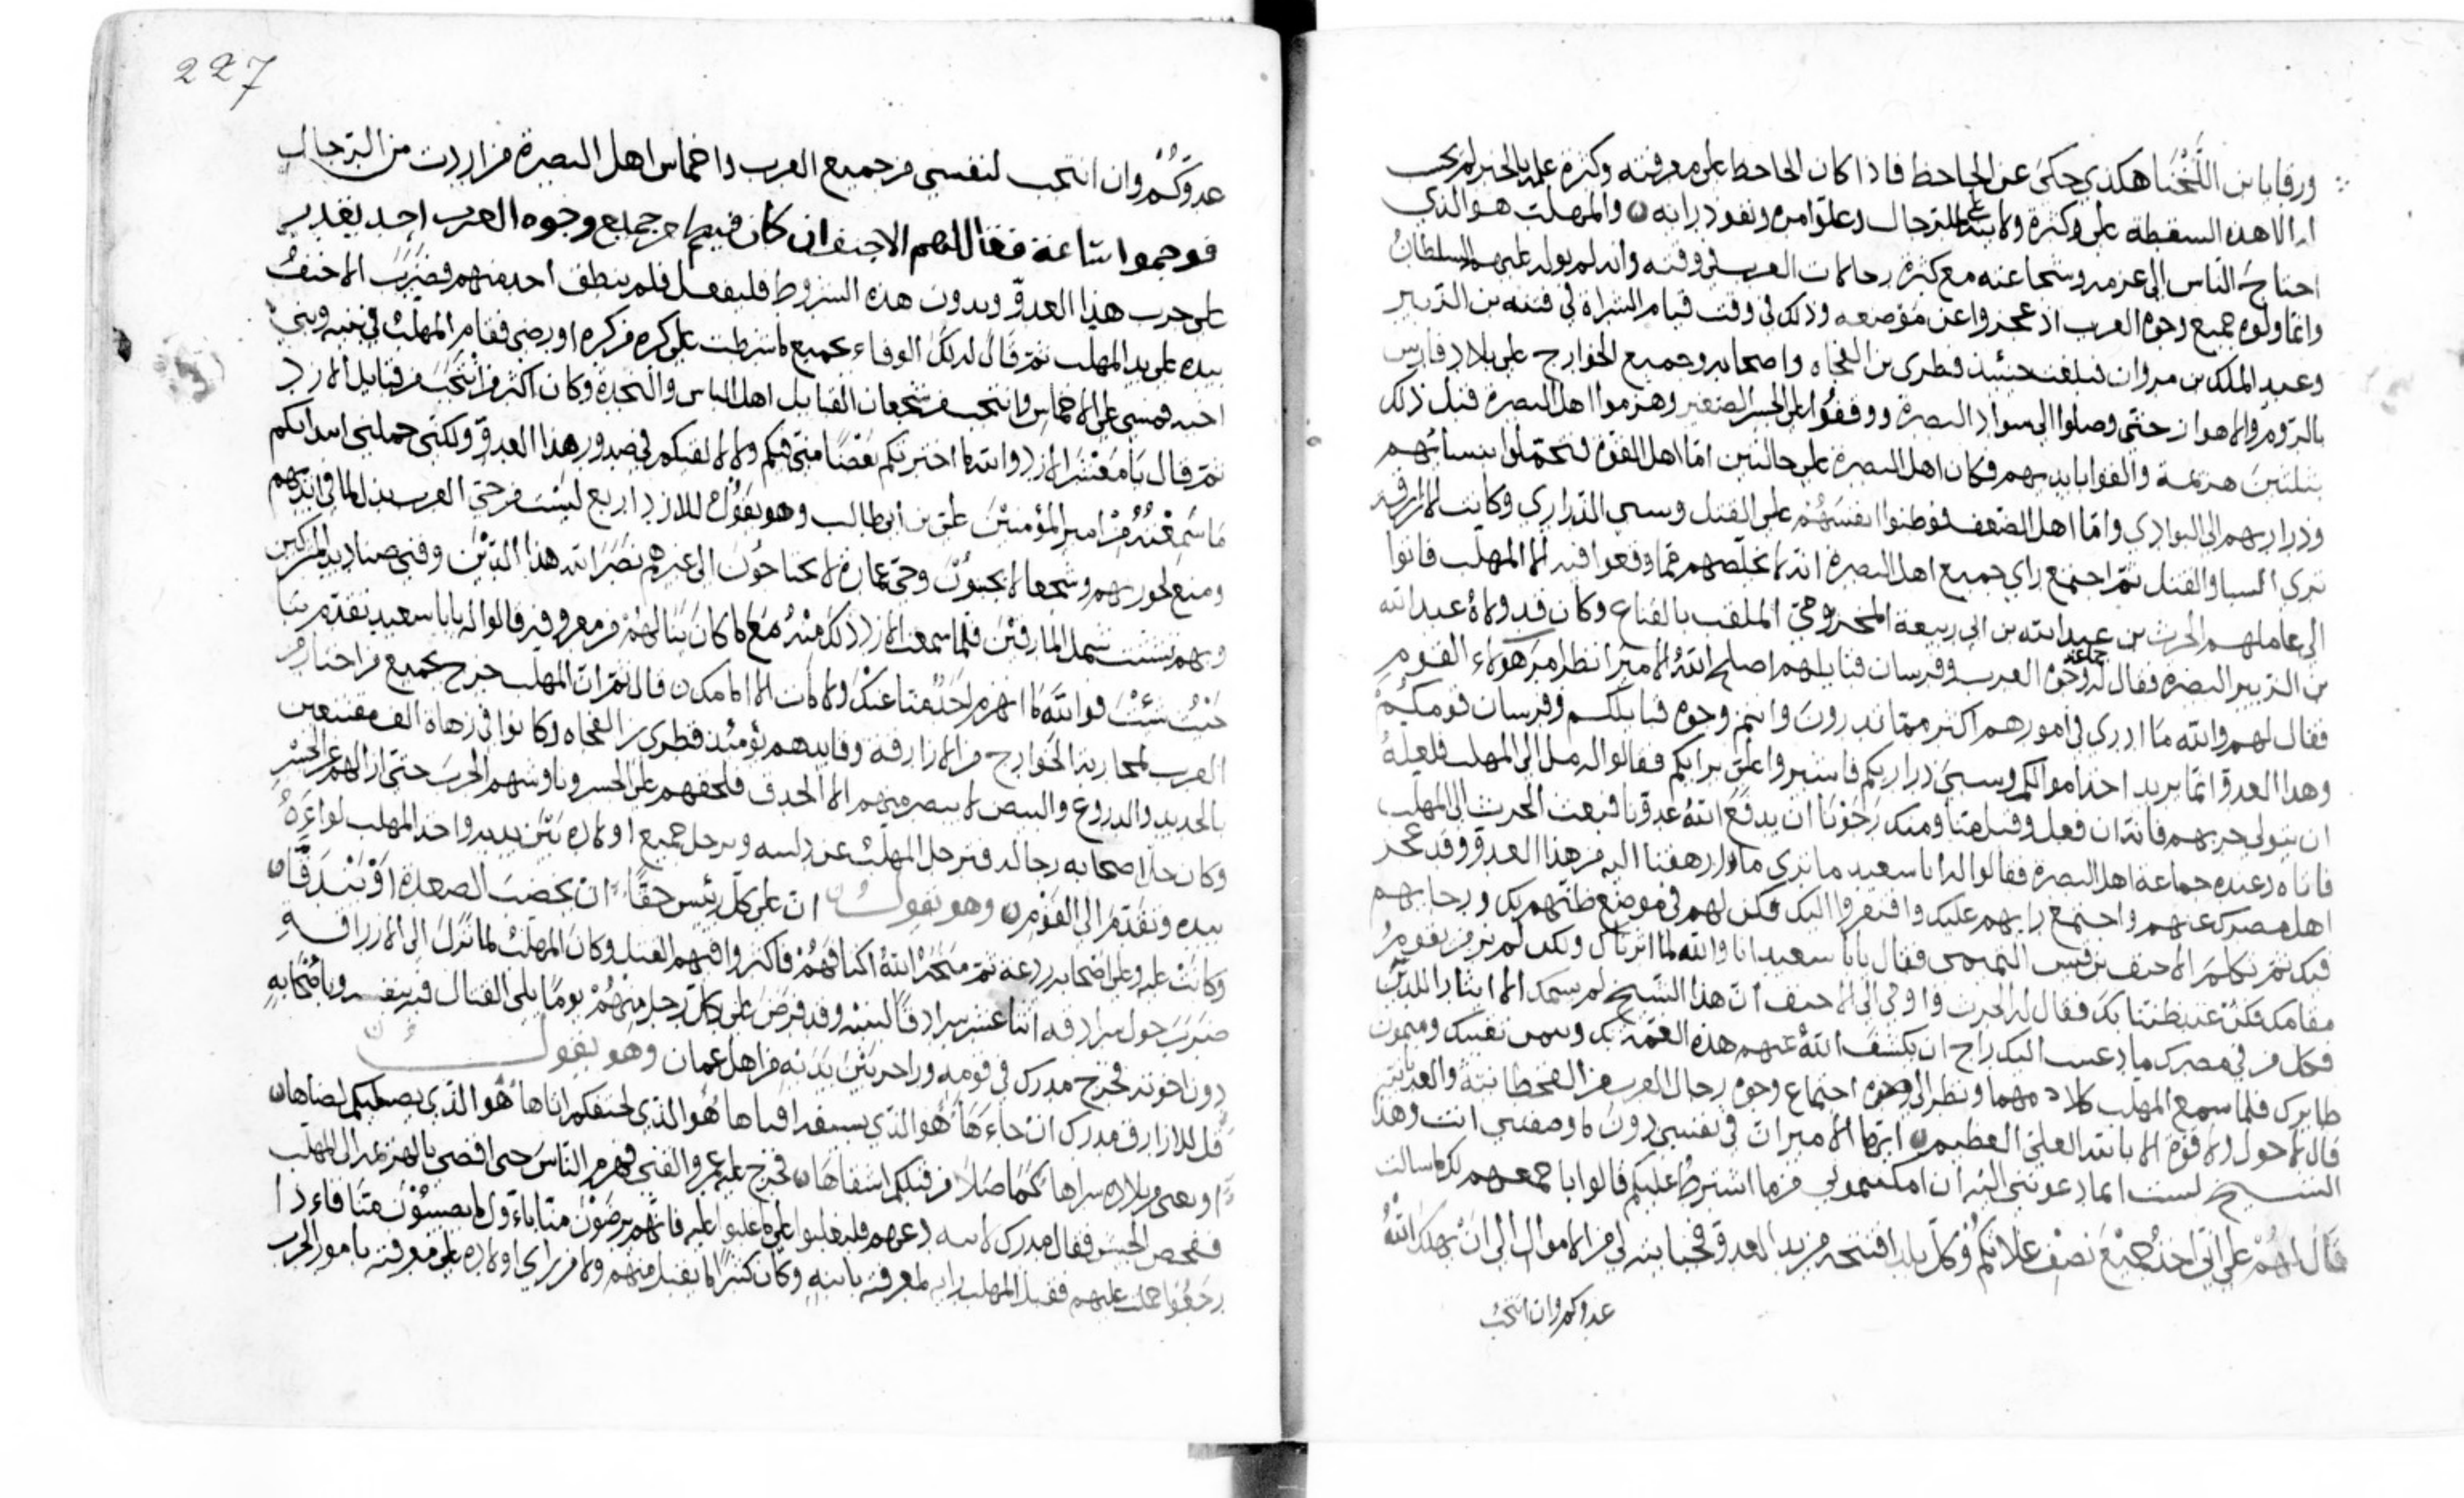 ورقابا بن اللخنا هكدي حكى عن الجاحظ فاذا كان الجاحظ على معرفته وكثرة علمه بالخبر لم يجب
الا هذه السقطة على وكثرة ولا الرجال وعلو امره ونفوذ رايه والمهلب هو الذي
احتاج الناس الى عزمه وشجاعته مع كثرة رجالات العرب في وقته وانه لم يوله عليهم السلطان
وانما ولوه جميع وجوه العرب اذ عجزوا عن موضعه وذلك في وقت قيام الشراة في فتنه بن الزبير
وعبد الملك بن مروان فبلغت حينئذ قطري بن الفجاه واصحابه وجميع الخوارج على بلاد فارس
بالروم والاهواز حتى وصلوا الى سواد البصرة ووقفوا على الجسر الصغير وهزموا اهل البصرة قبل ذلك
بثلثين هزيمة والقوا بايديهم فكان اهل البصره على حالتين اما اهل القوة فتحملوا بنسائهم
وذراريهم الى البوادي واما اهل الضعف فوطنوا انفسهم على القتل وسبى الذراري وكانت الازارقه
ترى السبا والقتل ثم اجتمع راي جميع اهل البصرة انه لا يخلصهم مما وقعوا فيه الا المهلب فاتوا
الى عاملهم الحرث بن عبد الله بن ابي ربيعة المخزومي الملقب بالقباع وكان قد ولاه عبد الله
بن الزبير البصره فقال له جماعة وجوه العرب وفرسان قبايلهم اصلح الله الامير انظر امر هولاء القوم
فقال لهم والله ما ادرى في امورهم اكثر مما تدرون وانتم وجوه قبايلكم وفرسان قومكم
وهذا العدو انما يريد اخذ اموالكم وسبى ذراريكم فاشيروا على برايكم فقالوا له مل الى المهلب فلعله
ان يتولى حربهم فانه ان فعل وقبل منا ومنك رجونا ان يدفع الله عدونا فبعث الحرث الى المهلب
فاتاه وعنده جماعة اهل البصرة فقالوا له ابا سعيد ما ترى ما ارهقنا اليه من هذا العدو وقد عجز
اهل مصرك عنهم واجتمع رايهم عليك وافتقروا اليك فكن لهم في موضع ظنهم بك ورجابهم
فيك ثم تكلم الاحنف بن قيس التميمى فقال يابا سعيد انا والله لما اثرناك ولكن لم نر من يقوم
مقامك فكن عند ظننا بك فقال له الحرث واومى الى الاحنف ان هذا الشيخ لم يسمك الا ايثارا للدين
فكل من في مصرك ان يكشف الله عنهم هذه الغمة بك وبيمن نفسك وميمون
طايرك فلما سمع المهلب كلا ونظر الى وجوه اجتماع وجوه رجال العرب من القحطانية والعدنانية
قال لا حول ولا قوة الا بالله العلي العظيم ايها الامير ان في نفسي دون ما وصفتنى انت وهذا
الشيخ لست اما دعوتني اليه ان امكنتموني من ما اشترط عليكم قالوا باجمعهم لك ما سالت
قال لهم على اني اخذ جميع نصف غلاتكم وكل بلد افتتحه من يد العدو فجبايته لي من الاموال الى ان يهلك الله
عدوكم وان انتخب
227
عدوكم وان انتخب لنفسي من جميع العرب واخماس اهل البصرة من اردت من الرجال
فوجموا ساعة فقال اللهم الاحنف ان كان فيكم من جميع وجوه العرب احد يقدر
على حرب هذا العدو وبدون هذه الشروط فليفعل فلم ينطق احد منهم فضرب الاحنف
بيده على يد المهلب ثم قال له لك الوفاء بجميع ما شرطت على كره من كره او رضى فقام المهلب في بنيه وبني
اخيه فمشى على الاخماس وانتخب من شجعان القبايل اهل الباس والنجدة وكان اكثر من انتخب من قبايل الازد
ثم قال يا معشر الازد والله ما اخترتكم بغضا منى فيكم ولا لالقيكم في صدور هذا العدو ولكنى حملنى ايثاركم
ما سمعته من امير المؤمنين على بن ابى طالب وهو يقول للازد اربع ليست من حي العرب بذل لما في ايديهم
ومنع لحوزتهم وشجعا لا يجبنون وحى عمارة لا يحتاجون الى غيرهم نصر الله هذا الدين وفني صناديد المشركين
وبهم يشتت شمل المارقين فلما سمعت الازد ذلك منه مع ما كان ينالهم من معروفه قالوا له يابا سعيد تقدم بنا
حيث شئت فوالله ما انهزم احد منا عنك ولا مات الا امامك قال ثم ان المهلب خرج بجميع من اختار من
العرب لمحاربة الخوارج من الازارقة وقايدهم يومئذ قطري بن الفجاه وكانوا في زهاة الف مقنعين
بالحديد والدروع والبيض لا يبصر منهم الا الحدق فلحقهم على الجسر وناوشهم الحرب حتى ازالهم عن الجسر
وكان جل اصحابه رجاله فترجل المهلب عن راسه وترجل جميع اولاده بين يديه واخذ المهلب لواءه
بيده وتقدم الى القوم وهو يقول ان على كل رئيس حقا ان يخضب الصعدة او تندقا
وكانت عليه وعلى اصحابه ردعة ثم منحهم الله اكتافهم فاكثروا فيهم القتل وكان المهلب لما نزل الى الازراقه
ضرب حول سرادقه اثنا عشر سرادقا لبنيه وقد فرض على كل رجل منهم يوما يلى القتال فيه بنفسه وباصحابه
دون اخوته فخرج مدرك في قومه وراحر بين يديه من اهل عمان وهو يقول
قل للازارق مدرك ان جاءها هو الذي هو الذي لحتفكم اتاها هو الذي يصطليكم لصاها
فخرج عليه عمرو القني فهزم الناس حتى افضي بالهزيمة الى المهلب
ففحص الجيش فقال مدرك لابيه دعهم فليغلبوا على ما غلبوا عليه فانهم يرضون منا باول ما يصيبون منا فاء ذا
رجعوا حملت عليهم فقبل المهلب رايه لمعرفته بابنه وكان كثيرا ما يقبل منهم ولا من براي اولاده على معرفته بامور الحرب